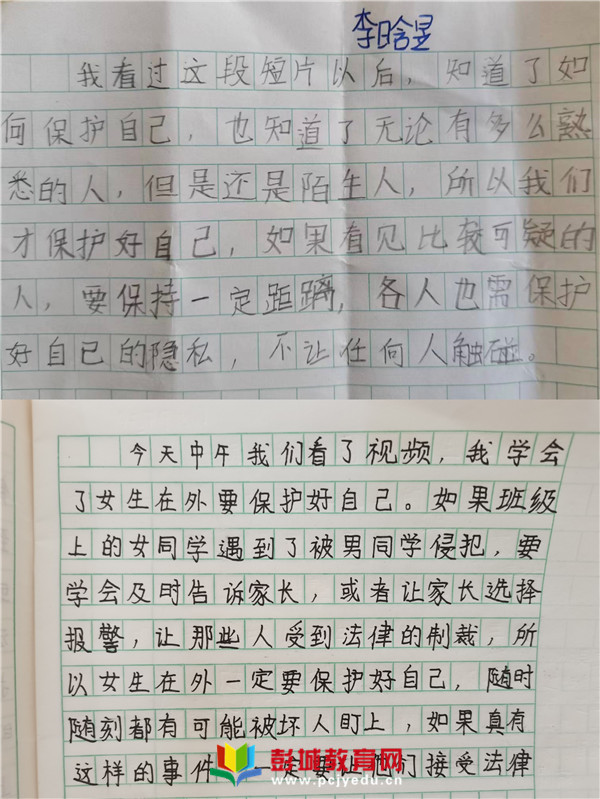 李晗昱
我看过这段短片以后，知道了如
何保护自己，也知道了无论有多么熟
悉的人，但是还是陌生人，所以我们
才保护好自己，如果看见比较可疑的
人，要保持一定距离，各人也需保护
好自己的隐私，不让任何人触碰。
今天中午我们看了视频，我学会
了女生在外要保护好自己。如果班级
上的女同学遇到了被男同学侵犯，要
学会及时告诉家长，或者让家长选择
报警，让那些人受到法律的制裁，所
以女生在外一定要保护好自己，随时
随刻都有可能被坏人盯上，如果真有
这样的事件 一定要让他们接受法律
彭城教育网
www.pcjyedu.cn